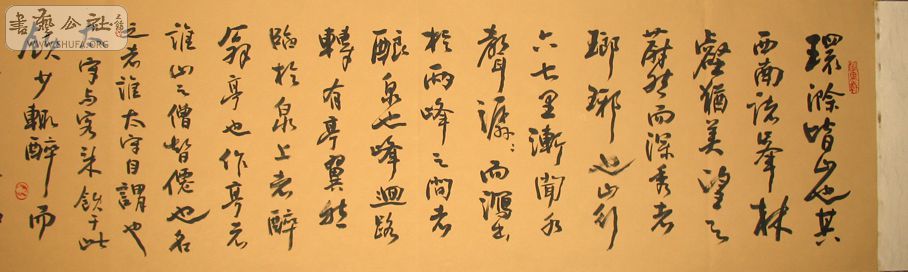 環滁皆山也其
西南諸峯林
壑猶美望之
蔚然而深秀者
瑯琊也山行
六七里漸聞水
聲潺〻而瀉出
於兩峰之間者
釀泉也峰迴路
轉有亭翼然
臨於泉上者醉
翁亭也作亭者
誰山之僧智僊也名
之者誰太守自謂也
太守与客来飲于此
飲少輒醉而
書藝公社
WWW.SHUFA.ORG